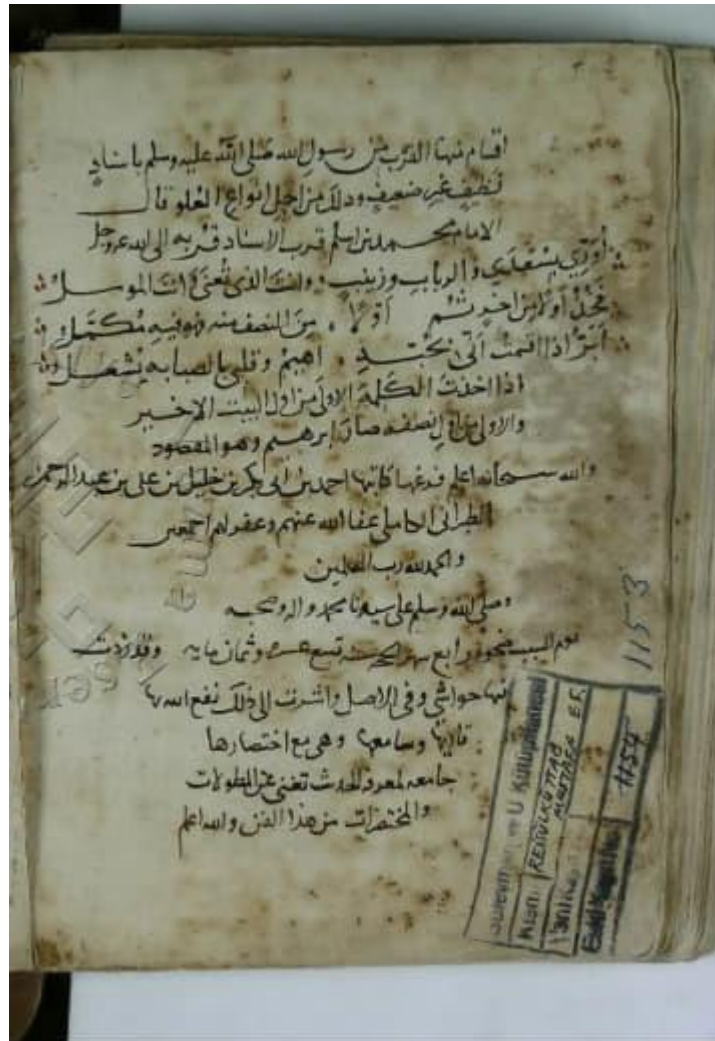 اقسام منها القرب من رسول الله صلى الله عليه وسلم باسناد
نظيف غير ضعيف وذلك من اجل انواع العلو قال
الامام محمد بن اسلم قرب الاسناد قربه الى الله عز وجل
أُوَرِّي بسعدى والرباب وزينب وانت الذى تُعنَى وانت الموسل
فخذ أولا من اخر ثم أولا من النصف منه فهو فيه مكمّل
أبرّ اذا اقسمت أنى بحبه أهيم وقلبى بالصبابه يشعل
اذا اخذت الكلمة الاولى من اول البيت الاخير
والاولى من اول نصفه صار ابرهيم وهو المقصود
والله سبحانه اعلم فرغها كاتبها احمد بن ابى بكر بن خليل بن على بن عبد الرحمن
الطرانى الكاملى عفا الله عنهم وعفو لهم اجمعين
والحمد لله رب العلمين
وصلى الله وسلم على سيدنا محمد واله وصحبه
يوم السبت ضحوة رابع شهر الحجه سنه تسع عشره وثمان مايه وقد زدت
فيها حواشى وفى الاصل واشرت الى ذلك نفع الله بها
قاريها وسامعها وهى مع اختصارها
جامعه لمعرفة الحديث تغنى عن المطولات
والمختصرات من هذا الفن والله اعلم
1153
Süleymaniye U Kütüphanesi
Kısmı REISÜLKÜTTAB MUSTAFA EF.
Yeni Kayıt No
Eski Kayıt No 1154